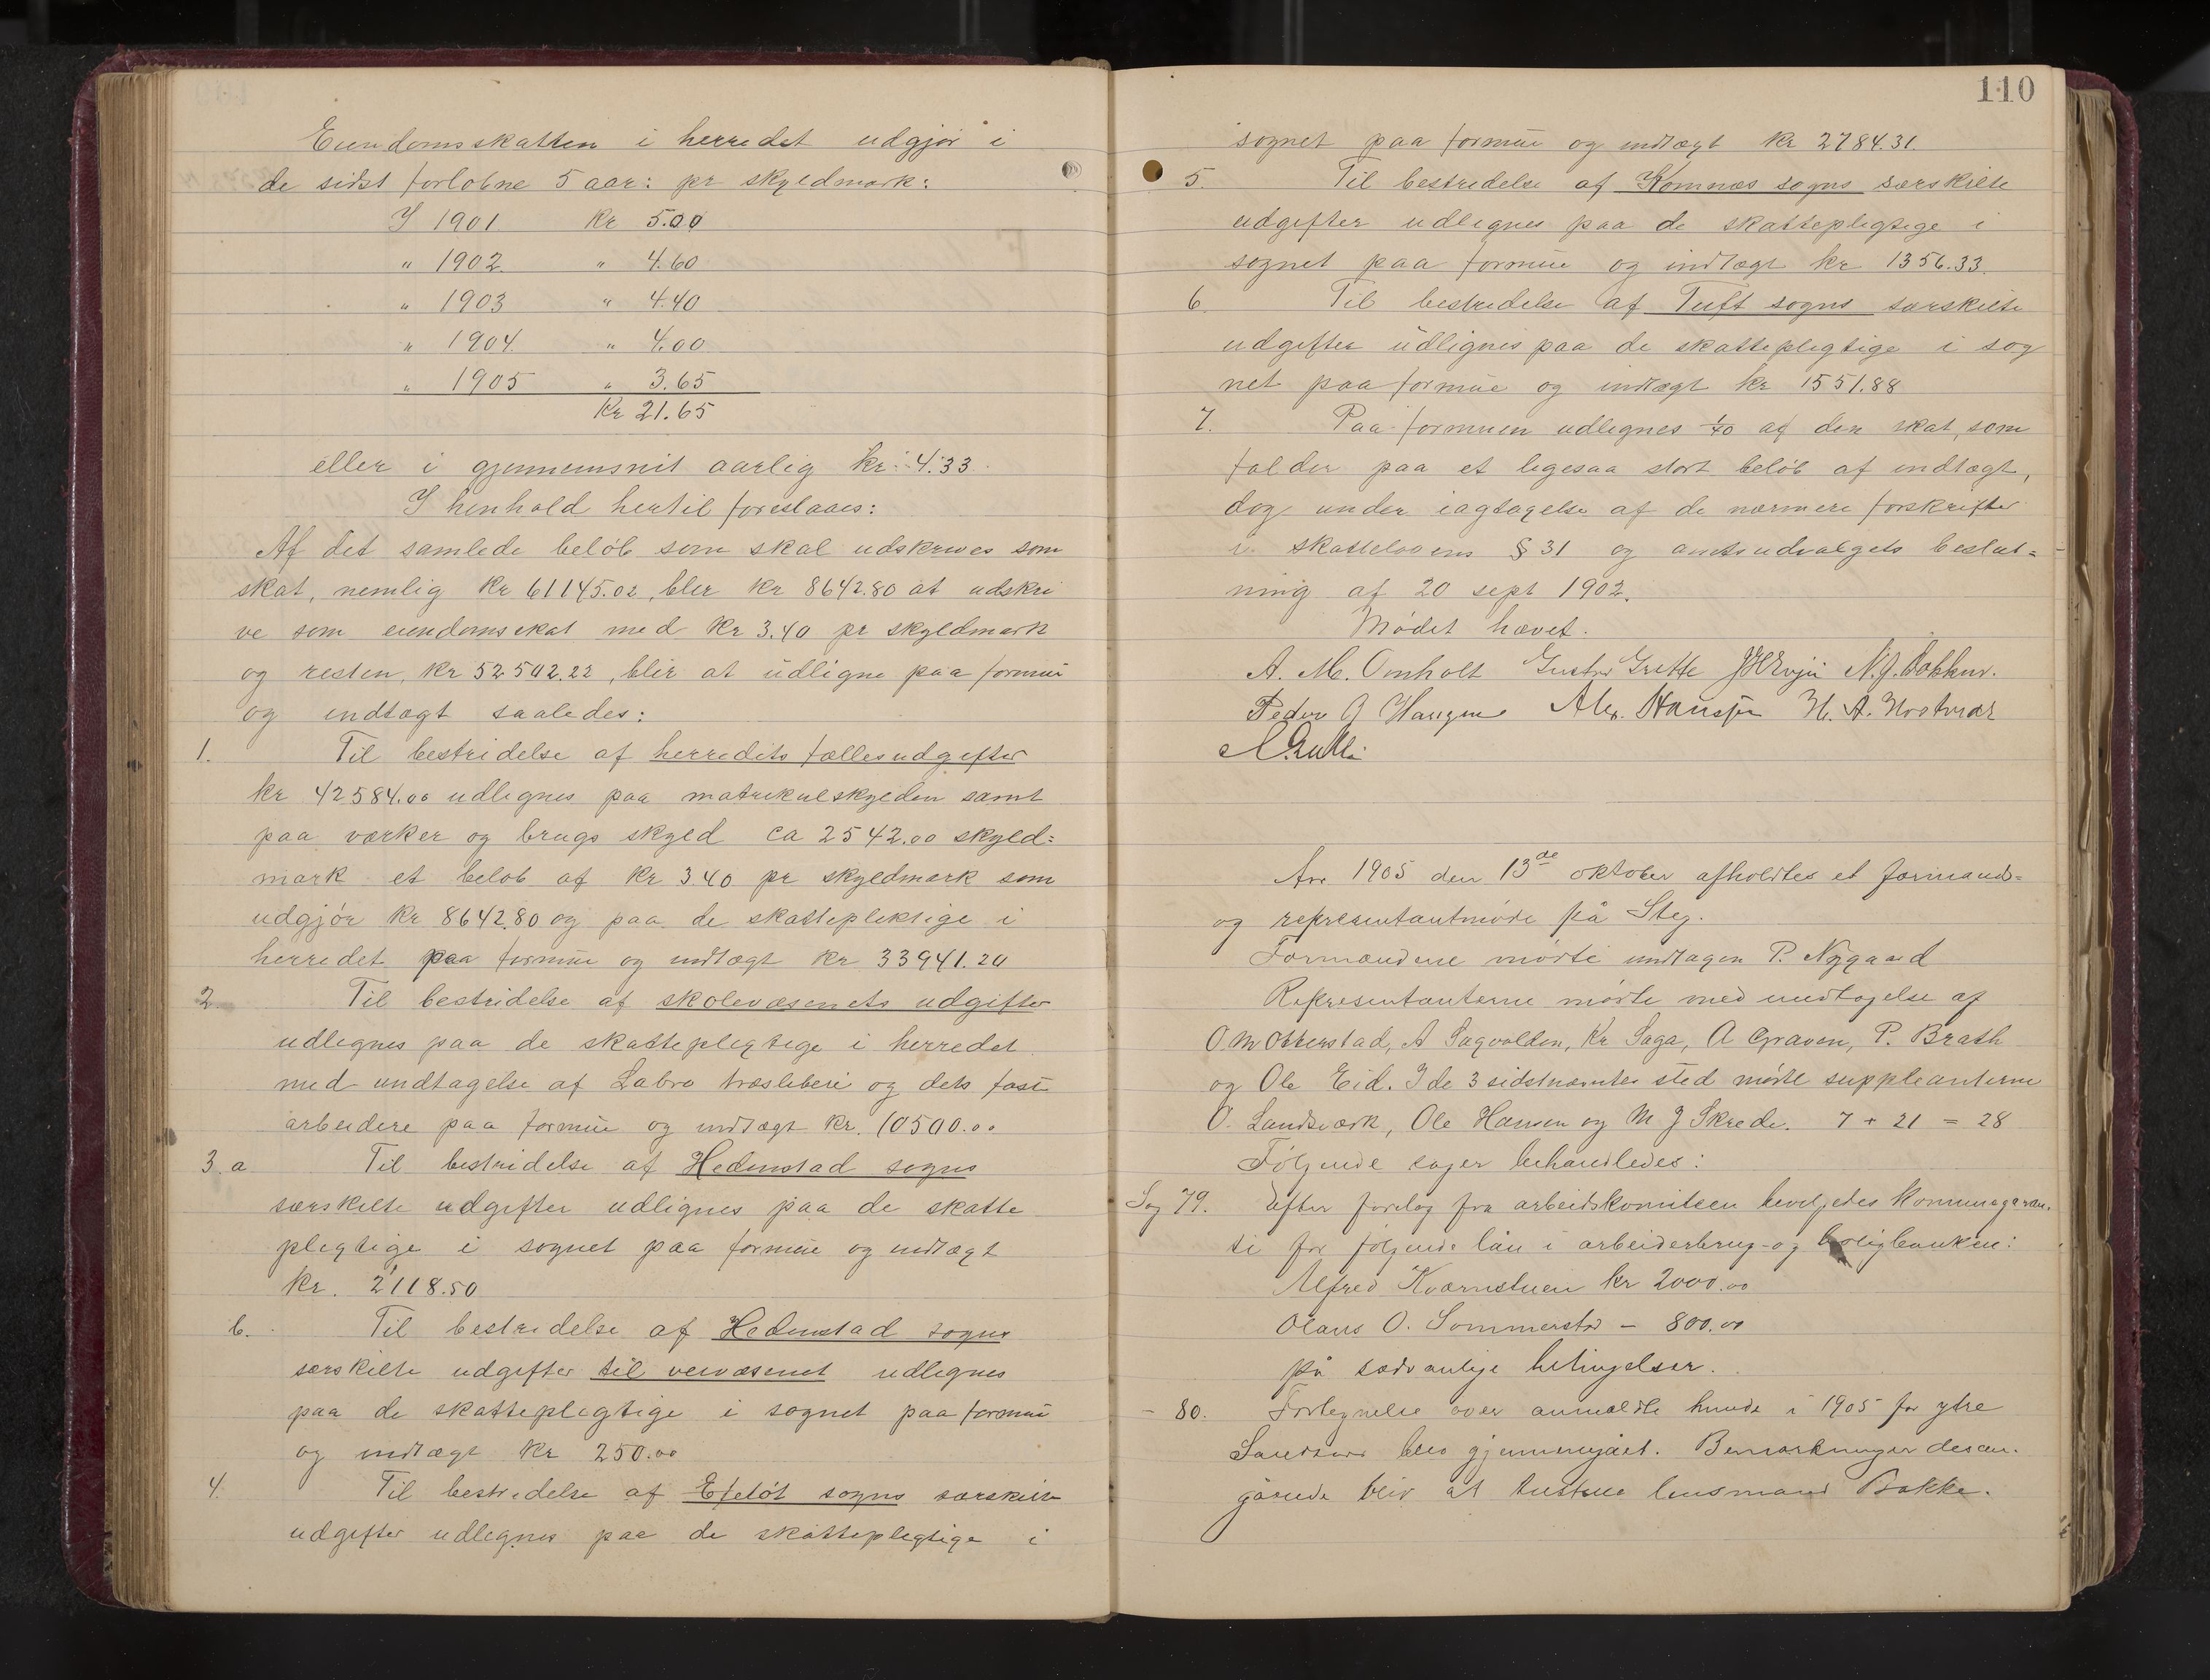 Eiendomsskatten i herredet udgjør i
de sidst forløbne 5 aar: pr skyldmark:
I 1901. Kr 5.00
" 1902. " 4.60
" 1903 " 4.40
" 1904. " 4.00
" 1905 " 3.65
Kr 21.65
eller i gjennemsnit aarlig kr: 4.33
I henhold hertil foreslaaes:
Af det samlede beløb som skal udskrives som
skat, nemlig Kr 61145.02, blir kr 8642.80 at udskri
ve som eiendomsskat med Kr 3.40 pr skyldmark
og resten, Kr 52.502.22, blir at udligne paa formue
og indtægt saaledes:
1. Til bestridelse af herredets fællesudgifter
kr 42584.00 udlignes paa matrikulskylden samt
paa værker og brugs skyld ca 2542.00 skyld=
mark et beløb af kr 3.40 pr skyldmark som
udgjør kr 8642.80 og paa de skattepliktige i
herredet paa formue og indtægt kr 33941.20
2. Til bestridelse af skolevæsenets udgifter
udlignes paa de skattepligtige i herredet
med undtagelse af Labro træsliberi og dets faste
arbeidere paa formue og indtægt kr. 10500.00
3. a Til bestridelse af Hedenstad sogns
særskilte udgifter udlignes paa de skatte
pligtige i sognet paa formue og indtægt
kr. 2118.50
b. Til bestridelse af Hedenstad sogns
særskilte udgifter til veivæsenet udlignes
paa de skattepligtige i sognet paa formue
og indtægt kr 250.00
4. Til bestridelse af Efteløt sogns særskilte
udgifter udlignes paa de skattepligtige i
110
sognet paa formue og indtægt kr 2784.31
5. Til bestridelse af Komnæs sogns særskilte
udgifter udlignes paa de skattepligtige i
sognet paa formue og indtægt kr 1356.33.
6. Til bestridelse af Tuft sogns særskilte
udgifter udlignes paa de skattepligtige i sog
net paa formue og indtægt kr 1551.88
7. Paa formuen udlignes 1/40 af den skat, som
falder paa et ligesaa stort beløb af indtægt,
dog under iagtagelse af de nærmere forskrifter
i skattelovens § 31 og amtsudvalgets beslut=
ning af 20 sept 1902.
Mødet hævet.
A. M. Omholt Gustav Grette N. J. Bakken.
Peder G Haugene Alex. Hansen H. A.
Aar 1905 den 13de oktober afholdtes et formands=
og representantmøde på Steg.
Formændene mødte undtagen P. Nygaard
Representanterne mødte med undtagelse af
O. M Otterstad, A Sagvolden, Kr Saga, A Graven, P. Brath
og Ole Eid. I de 3 sidstnævntes sted mødte suppleanterne
O. Landsverk, Ole Hansen og M J Skrede. 7 + 21 = 28
Følgende sager behandledes:
Sag 79. Efter forslag fra arbeidskomiteen bevilgedes kommunegaran-
ti for følgende lån i arbeiderbrug- og boligbanken:
Alfred Kværnstuen kr 2000.00
Olaus O. Sommerstad - 800.00
på sædvanlige betingelser.
- 80. Fortegnelse over anmeldte hunde i 1905 for ytre
Sandsvær blev gjennemgået. Bemærkninger desan-
gående blev at tilstille lensmand Bakke.